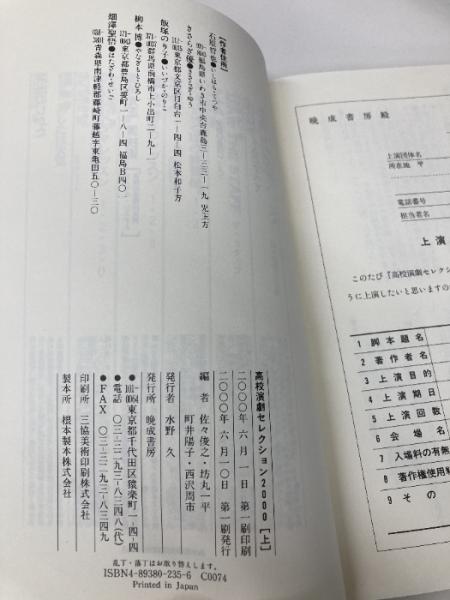 【作者住所】
石原哲也●いしはらてつや
ききらぎ優●きさらぎゆう
飯塚のり子●いいづか・のりこ
柳本博●やなぎもとひろし
畑澤聖悟●はたざわ・せいご
高校演劇セレクション2000［上］
二〇〇〇年 六月 一日 第一刷印刷
二〇〇〇年 六月一〇日 第一刷発行
編者 佐々俊之・坊丸一平
町井陽子・西沢周市
発行者 水野 久
発行所 晩成書房
●101-0064東京都千代田区猿楽町一-四-四
●電話 〇三-三二九三-八三四八(代)
●FAX 〇三-三二九三-八三四九
印刷所 三協美術印刷株式会社
製本所 根本製本株式会社
乱丁・落丁はお取り替えします。
ISBN4-89380-235-6 C0074
Printed in Japan
晩成書房殿
上演団体名
所在地 〒
電話番号
担当者名
上演
このたび『高校演劇セレクシ
うに上演したいと思いますの
1 脚本題名
2 著作者名
3 上演目的
4 上演期日
5 上演回数
6 会場名
7 入場料の有無
8 著作権使用料
9 その